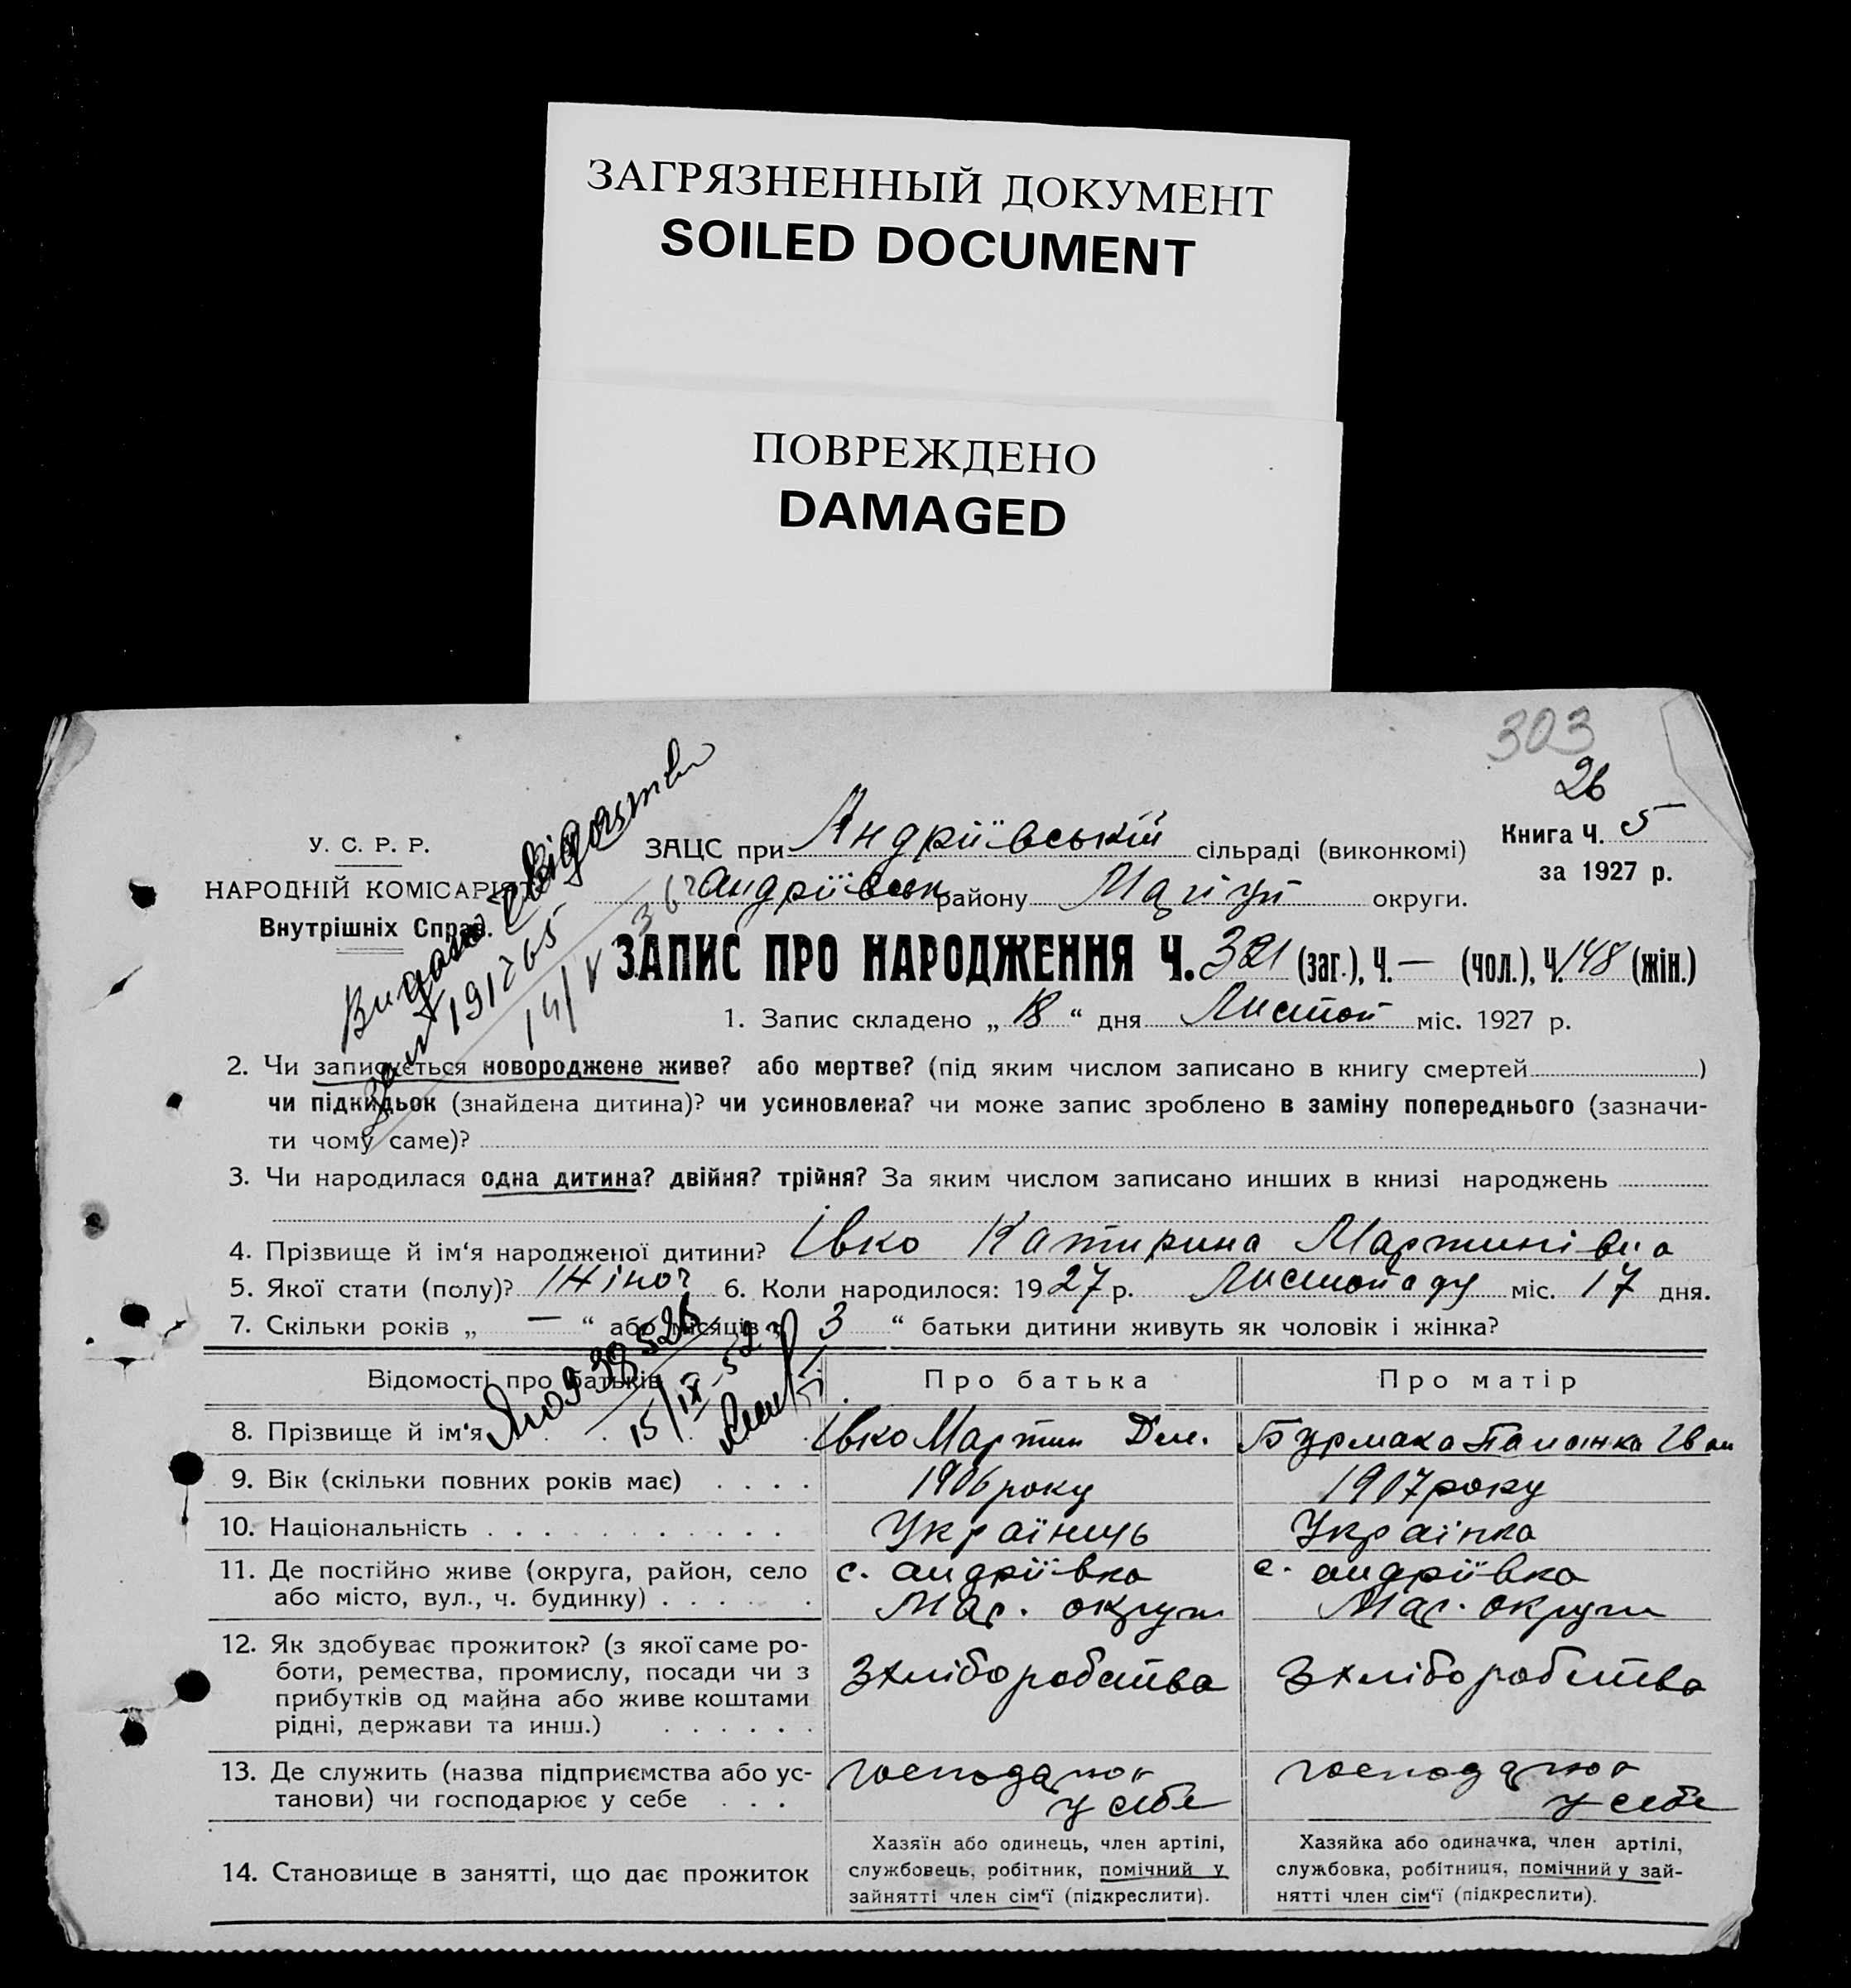 ЗАГРЯЗНЕННЫЙ ДОКУМЕНТ
SOILED DOCUMENT
ПОВРЕЖДЕНО
DAMAGED
303
26
У. С. Р. Р.
НАРОДНІЙ КОМІСАРІЯТ
Внутрішніх Справ.
Видано свідоцтво
за № 191765
ЗАЦС при Андріївській сільраді (виконкомі)
Андріївськ району Маріуп округи.
Книга Ч. 5
за 1927 р.
ЗАПИС ПРО НАРОДЖЕННЯ Ч. 321 (заг.), Ч. — (чол.), Ч. 148 (жін.)
1. Запис складено „ 18 “ дня Листоп міс. 1927 р.
2. Чи записується новороджене живе? або мертве? (під яким числом записано в книгу смертей )
чи підкидьок (знайдена дитина)? чи усиновлена? чи може запис зроблено в заміну попереднього (зазначи-
ти чому саме)?
3. Чи народилася одна дитина? двійня? трійня? За яким числом записано инших в книзі народжень
4. Прізвище й ім‘я народженої дитини? Івко Катирина Мартинівна
5. Якої стати (полу)? Жіноч 6. Коли народилося: 1927 р. Листопаду міс. 17 дня.
7. Скільки років „ — “ або місяців „ 3 “ батьки дитини живуть як чоловік і жінка?
15/IX-52
Відомості про батьків Про батька Про матір
8. Прізвище й ім‘я Івко Мартин Дем. Бурмака Паланка Іван
9. Вік (скільки повних років має) 1906 року 1907 року
10. Національність Українць Українка
11. Де постійно живе (округа, район, село
або місто, вул., ч. будинку) с. Андріївка
Мар. округи с. Андріївка
Мар. округи
12. Як здобуває прожиток? (з якої саме ро-
боти, ремества, промислу, посади чи з
прибутків од майна або живе коштами
рідні, держави та инш.) З хліборобства З хліборобства
13. Де служить (назва підприємства або ус-
танови) чи господарює у себе господарює
у себе господарює
у себе
14. Становище в занятті, що дає прожиток
Хазяїн або одинець, член артілі,
службовець, робітник, помічний у
зайнятті член сім‘ї (підкреслити).
Хазяйка або одиначка, член артілі,
службовка, робітниця, помічний у зай-
нятті член сім‘ї (підкреслити).